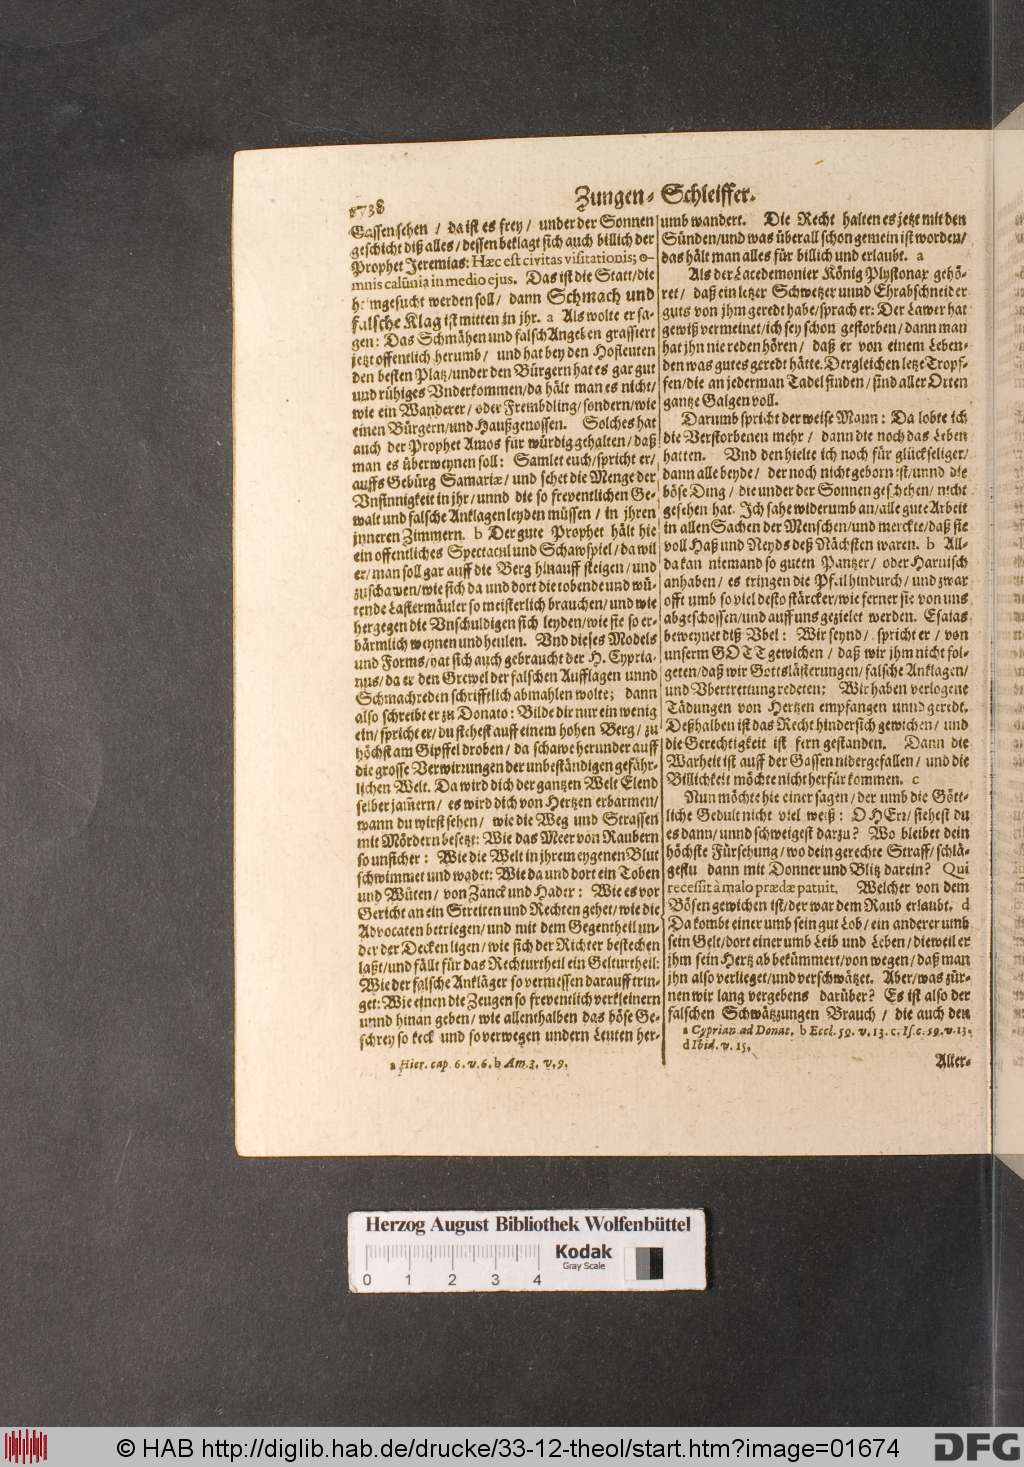 1738
Zungen- Schleiffer.
Gassen sehen / da ist es frey / under der Sonnen
geschicht diß alles / dessen beklagt sich auch billich der
Prophet Jeremias: Hæc est civitas visitationis; o-
mnis calũnia in medio ejus. Das ist die Statt / die
heimgesucht werden soll / dann Schmach und
falsche Klag ist mitten in jhr. a Als wolte er sa-
gen: Das Schmähen und falsch Angeben grassiert
jetzt offentlich herumb / und hat bey den Hofleuten
den besten Platz / under den Bürgern hat es gar gut
und rühiges Underkommen / da hält man es nicht /
wie ein Wanderer / oder Frembdling / sondern / wie
einen Bürgern / und Haußgenossen. Solches hat
auch der Prophet Amos für würdig gehalten / daß
man es überweynen soll: Samlet euch / spricht er /
auffs Gebürg Samariæ / und sehet die Menge der
Unsinnigkeit in jhr / unnd die so freventlichen Ge-
walt und falsche Anklagen leyden müssen / in jhren
jnneren Zimmern. b Der gute Prophet hält hie
ein offentliches Spectacul und Schawspiel / da wil
er / man soll gar auff die Berg hinauff steigen / und
zuschawen / wie sich da und dort die tobende und wü-
tende Lastermäuler so meisterlich brauchen / und wie
hergegen die Unschuldigen sich leyden / wie sie so er-
bärmlich weynen und heulen. Und dieses Models
und Forms / hat sich auch gebraucht der H. Cypria-
nus / da er den Grewel der falschen Aufflagen unnd
Schmachreden schrifftlich abmahlen wolte; dann
also schreibt er zu Donato: Bilde dir nur ein wenig
ein / spricht er / du stehest auff einem hohen Berg / zu
höchst am Gipffel droben / da schawe herunder auff
die grosse Verwirrungen der unbeständigen gefähr-
lichen Welt. Da wird dich der gantzen Welt Elend
selber jam̃ern / es wird dich von Hertzen erbarmen /
wann du wirst sehen / wie die Weg und Strassen
mit Mördern besetzt: Wie das Meer von Raubern
so unsicher: Wie die Welt in jhrem eygenen Blut
schwimmet und wadet: Wie da und dort ein Toben
und Wüten / von Zanck und Hader: Wie es vor
Gericht an ein Streiten und Rechten gehet / wie die
Advocaten betriegen / und mit dem Gegentheil un-
der der Decken ligen / wie sich der Richter bestechen
laßt / und fällt für das Rechturtheil ein Gelturtheil:
Wie der falsche Ankläger so vermessen darauff trin-
get: Wie einen die Zeugen so freventlich verkleinern
unnd hinan geben / wie allenthalben das böse Ge-
schrey so keck und so verwegen undern Leuten her-
a Hier. cap. 6. v. 6. b Am. 3. v. 9.
umb wandert. Die Recht halten es jetzt mit den
Sünden / und was überall schon gemein ist worden /
das hält man alles für billich und erlaubt. a
Als der Lacedemonier König Plystonax gehö-
ret / daß ein letzer Schwetzer unnd Ehrabschneider
guts von jhm geredt habe / sprach er: Der Lawer hat
gewiß vermeinet / ich sey schon gestorben / dann man
hat jhn nie reden hören / daß er von einem Leben-
den was gutes geredt hätte. Dergleichen letze Tropf-
fen / die an jederman Tadel finden / sind aller Orten
gantze Galgen voll.
Darumb spricht der weise Mann: Da lobte ich
die Verstorbenen mehr / dann die noch das Leben
hatten. Und den hielte ich noch für glückseliger /
dann alle beyde / der noch nicht geborn ist / unnd die
böse Ding / die under der Sonnen geschehen / nicht
gesehen hat. Ich sahe widerumb an / alle gute Arbeit
in allen Sachen der Menschen / und merckte / daß sie
voll Haß und Neyds deß Nächsten waren. b All-
da kan niemand so guten Pantzer / oder Harnisch
anhaben / es tringen die Pfeil hindurch / und zwar
offt umb so viel desto stärcker / wie ferner sie von uns
abgeschossen / und auff uns gezielet werden. Esaias
beweynet diß Ubel: Wir seynd / spricht er / von
unserm GOTT gewichen / daß wir jhm nicht fol-
geten / daß wir Gottslästerungen / falsche Anklagen /
und Ubertrettung redeten: Wir haben verlogene
Tädungen von Hertzen empfangen unnd geredt.
Deßhalben ist das Recht hindersich gewichen / und
die Gerechtigkeit ist fern gestanden. Dann die
Warheit ist auff der Gassen nidergefallen / und die
Billichkeit möchte nicht herfür kommen. c
Nun möchte hie einer sagen / der umb die Gött-
liche Gedult nicht viel weiß: O HErr / siehest du
es dann / unnd schweigest darzu? Wo bleibet dein
höchste Fürsehung / wo dein gerechte Straff / schlä-
gestu dann mit Donner und Blitz darein? Qui
recessit à malo prædæ patuit. Welcher von dem
Bösen gewichen ist / der war dem Raub erlaubt. d
Da kombt einer umb sein gut Lob / ein anderer umb
sein Gelt / dort einer umb Leib und Leben / dieweil er
jhm sein Hertz ab bekümmert / von wegen / daß man
jhn also verlieget / und verschwätzet. Aber / was zür-
nen wir lang vergebens darüber? Es ist also der
falschen Schwätzzungen Brauch / die auch den
a Cyprian. ad Donat. b Eccl. 59. v. 13. c. Is. c. 59. v. 13.
d Ibid. v. 15.
Aller-
Herzog August Bibliothek Wolfenbüttel
Kodak
Gray Scale
0 1 2 3 4
© HAB http://diglib.hab.de/drucke/33-12-theol/start.htm?image=01674
DFG